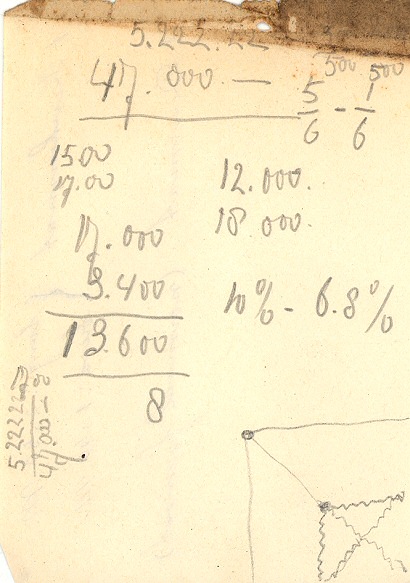 5.222.22
500 500
47.000 —
5/6 - 1/6
1500
17.00
12.000.
18.000.
17.000
3.400
13.600
8
10% - 6.8%
522222
47.000 -